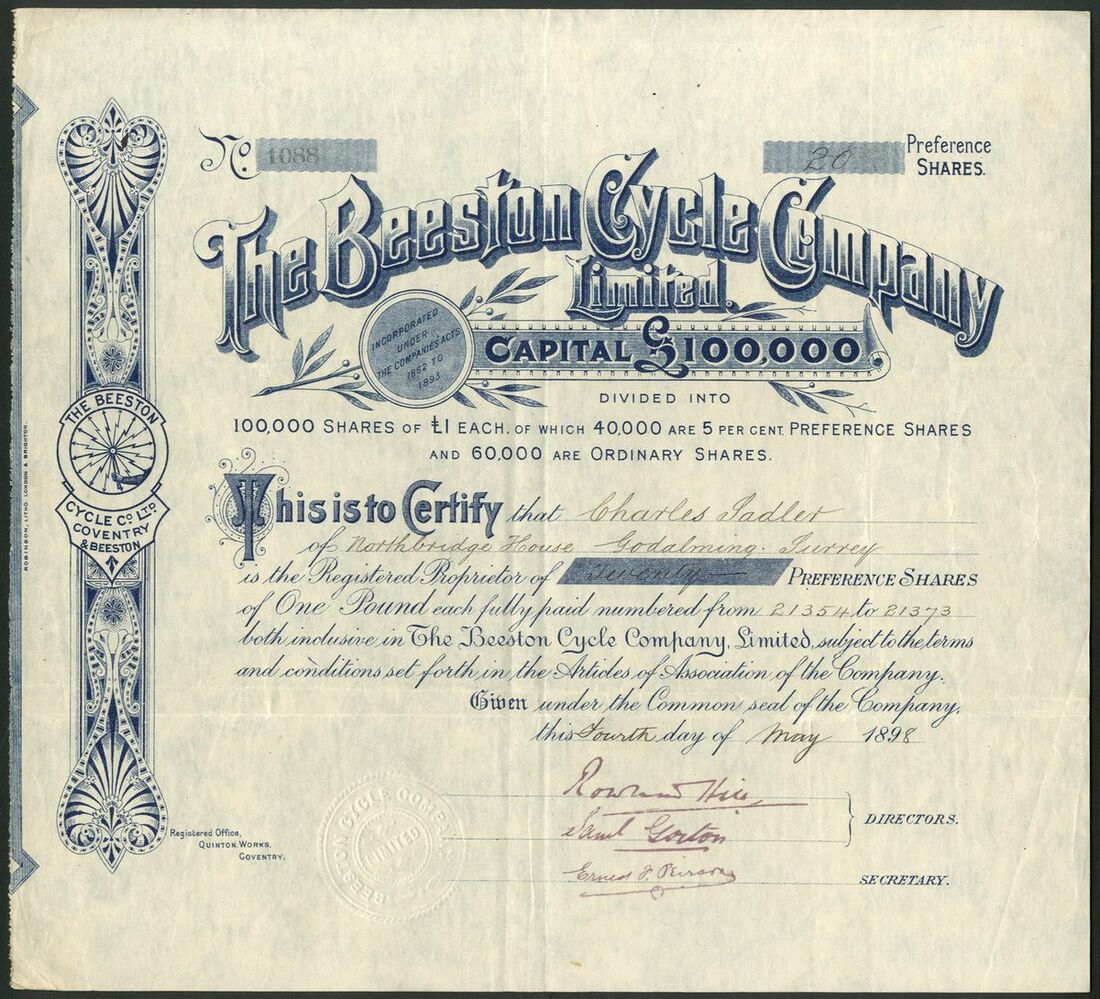 No. 1088
20 Preference
SHARES.
The Beeston Cycle Company
Limited.
INCORPORATED
UNDER
THE COMPANIES' ACTS
1862 TO
1893
CAPITAL £100,000
DIVIDED INTO
100,000 SHARES OF £1 EACH, OF WHICH 40,000 ARE 5 PER CENT. PREFERENCE SHARES
AND 60,000 ARE ORDINARY SHARES.
This is to Certify that Charles Sadler
of Northbridge House Godalming. Surrey
is the Registered Proprietor of Twenty PREFERENCE SHARES
of One Pound each fully paid numbered from 21354 to 21373
both inclusive in The Beeston Cycle Company, Limited, subject to the terms
and conditions set forth in the Articles of Association of the Company.
Given under the Common seal of the Company,
this Fourth day of May 1898
Rowland Hill
Saml Gorton
DIRECTORS.
Ernest F. Peirson
SECRETARY.
BEESTON CYCLE COMPANY
LIMITED
Registered Office,
QUINTON WORKS,
COVENTRY.
THE BEESTON
CYCLE CO LTD
COVENTRY
& BEESTON
ROBINSON, LITHO. LONDON & BRIGHTON.